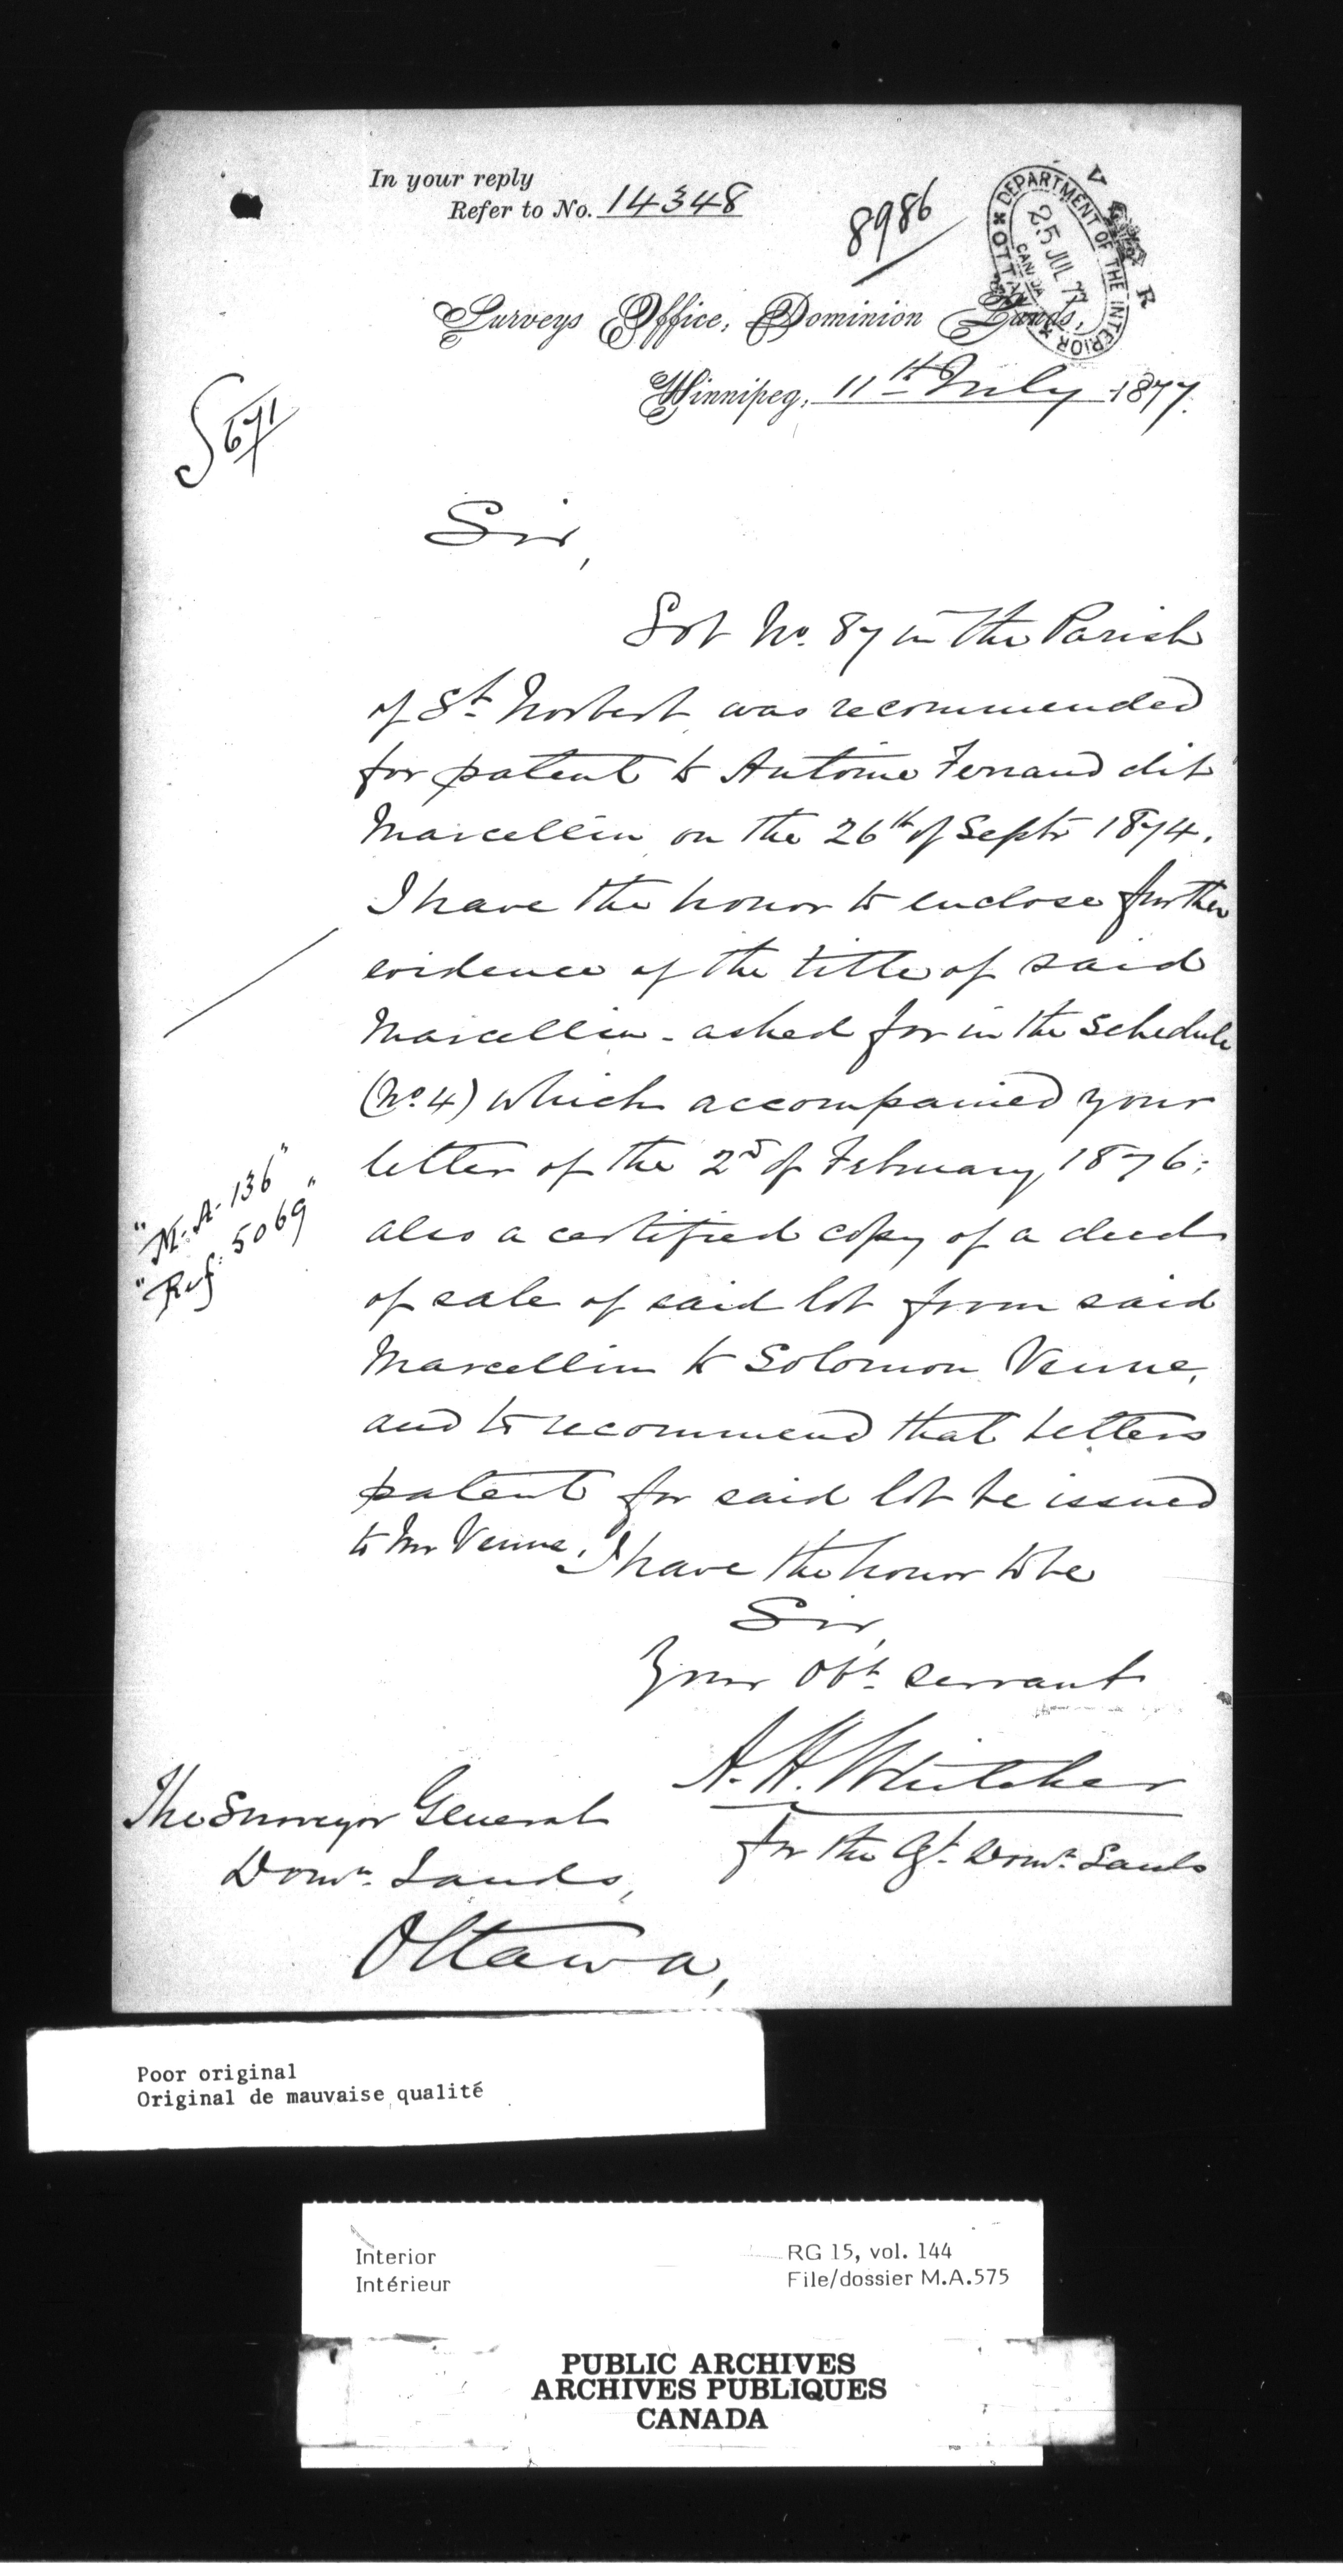 In your reply
Refer to No. 14348
8986
V R
DEPARTMENT OF THE INTERIOR
25 JUL 77
CANADA
OTTAWA
Surveys Office, Dominion Lands,
Winnipeg, 11th July 1877.
S 671
Sir,
Lot No. 87 in the Parish
of St. Norbert was recommended
for patent to Antoine Ferrand dit
Marcellin on the 26th of Septr 1874.
I have the honor to enclose further
evidence of the title of said
Marcellin - asked for in the Schedule
(No. 4) which accompanied your
letter of the 2d of February 1876;
"M.A. 136"
"Ref. 5069"
also a certified copy of a deed
of sale of said lot from said
Marcellin to Solomon Venne,
and to recommend that letters
patent for said lot be issued
to Mr Venne.
I have the honor to be
Sir,
Your Obt. servant
A. H. Whitcher
for the Agt. Domn. Lands
The Surveyor General
Domn. Lands,
Ottawa,
Poor original
Original de mauvaise qualité
Interior
Intérieur
RG 15, vol. 144
File/dossier M.A.575
PUBLIC ARCHIVES
ARCHIVES PUBLIQUES
CANADA